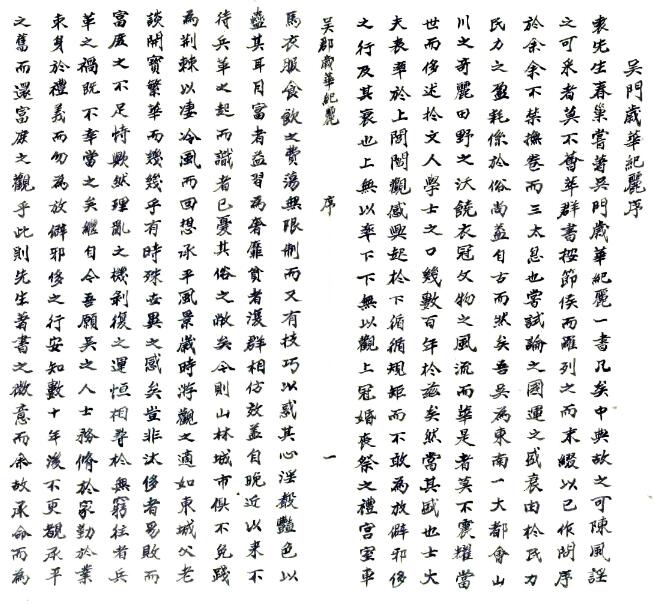 吳門歲華紀麗序
袁先生春巢嘗著吳門歲華紀麗一書凡矣中典故之可陳風謠
之可采者莫不薈萃群書按節侯而羅列之而末綴以己作問序
於余余不禁撫卷而三太息也嘗試論之國運之盛衰由於民力
民力之盈耗係於俗尚蓋自古而然矣吾吳為東南一大都會山
川之奇麗田野之沃饒衣冠文物之風流而華是者莫不震耀當
世而侈述於文人學士之口幾數百年於茲矣然當其盛也士大
夫表率於上閭閻觀感興起於下循循規矩而不敢為放僻邪侈
之行及其衰也上無以率下下無以觀上冠婚喪祭之禮宮室車
吳郡歲華紀麗
序
一
馬衣服食飲之費蕩無限制而又有技巧以惑其心淫聲豔色以
蠱其耳目富者益習為奢靡貧者漫群相仿效蓋自晚近以來不
待兵革之起而識者已憂其俗之敝矣今則山林城市俱不免踐
為荊棘以淒冷風而回想承平風景歲時遊觀之適如東城父老
談開寶繁華而幾幾乎有時殊世異之感矣豈非汰侈者易敗而
富庶之不足恃歟然理亂之機剝復之運恒相尋於無窮往者兵
革之禍既不幸當之矣繼自今吾願吳之人士務脩於家勤於業
束身於禮義而勿為放僻邪侈之行安知數十年後不更覩承平
之舊而還富庶之觀乎此則先生著書之微意而余故承命而為